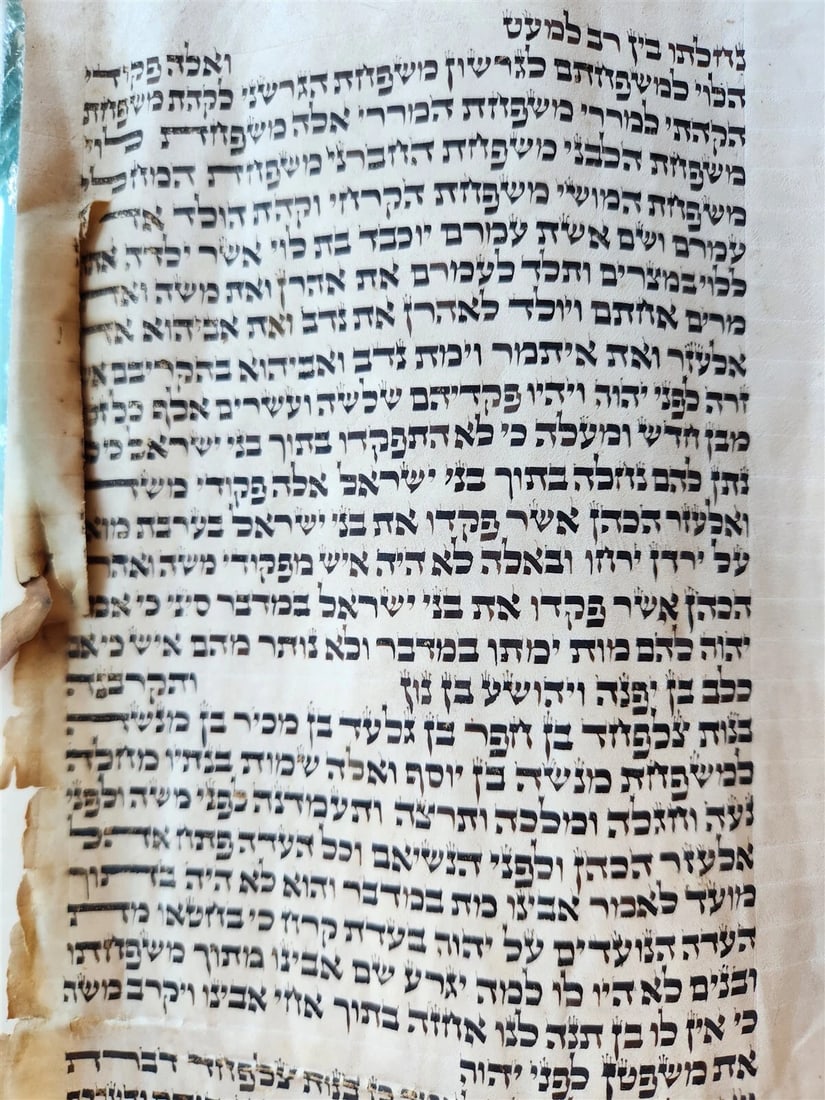 נחלתו בין רב למעט ואלה פקודי
הלוי למשפחתם לגרשון משפחת הגרשני לקהת משפחת
הקהתי למררי משפחת המררי אלה משפחת לוי
משפחת הלבני משפחת החברני משפחת המחלי
משפחת המושי משפחת הקרחי וקהת הולד את
עמרם ושם אשת עמרם יוכבד בת לוי אשר ילדה
ללוי במצרים ותלד לעמרם את אהרן ואת משה ואת
מרים אחתם ויולד לאהרן את נדב ואת אביהוא את
אלעזר ואת איתמר וימת נדב ואביהוא בהקריבם
זרה לפני יהוה ויהיו פקדיהם שלשה ועשרים אלף כל
מבן חדש ומעלה כי לא התפקדו בתוך בני ישראל כי
נתן להם נחלה בתוך בני ישראל אלה פקודי משה
ואלעזר הכהן אשר פקדו את בני ישראל בערבת מואב
על ירדן ירחו ובאלה לא היה איש מפקודי משה ואהרן
הכהן אשר פקדו את בני ישראל במדבר סיני כי אמר
יהוה להם מות ימתו במדבר ולא נותר מהם איש כי אם
כלב בן יפנה ויהושע בן נון ותקרבנה
בנות צלפחד בן חפר בן גלעד בן מכיר בן מנשה
למשפחת מנשה בן יוסף ואלה שמות בנתיו מחלה
נעה וחגלה ומלכה ותרצה ותעמדנה לפני משה ולפני
אלעזר הכהן ולפני הנשיאם וכל העדה פתח אהל
מועד לאמר אבינו מת במדבר והוא לא היה בתוך
העדה הנועדים על יהוה בעדת קרח כי בחטאו מת
ובנים לא היו לו למה יגרע שם אבינו מתוך משפחתו
כי אין לו בן תנה לנו אחזה בתוך אחי אבינו ויקרב משה
את משפטן לפני יהוה
כן בנות צלפחד דברת